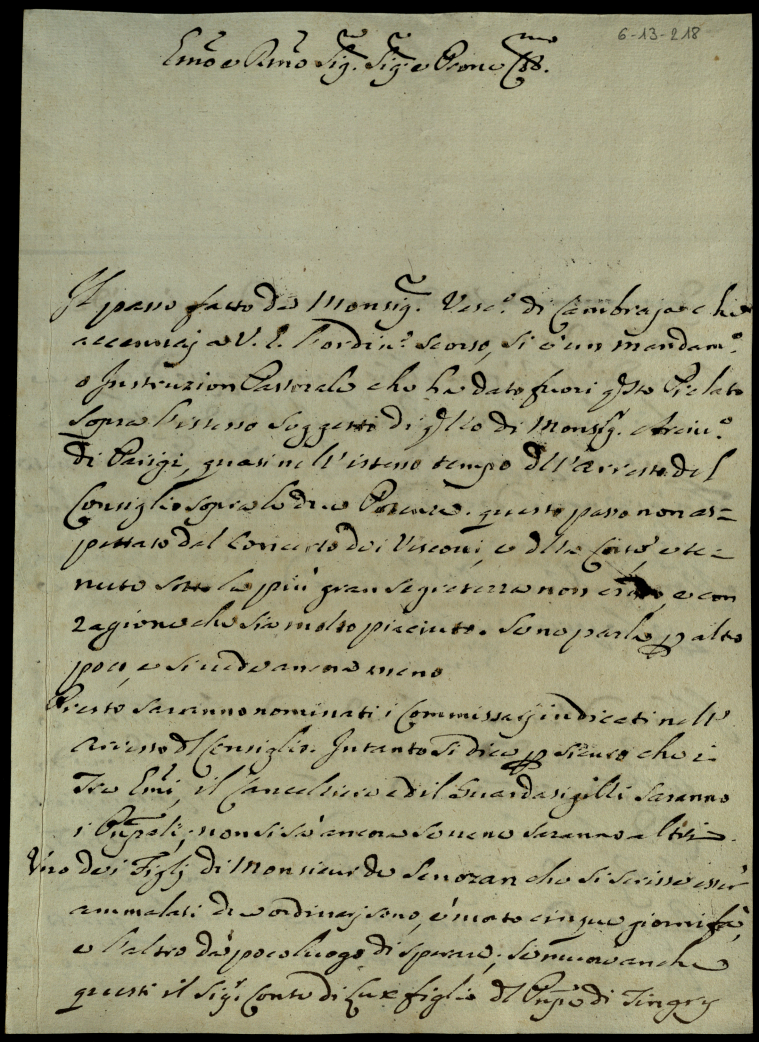 6-13-218
Em̃o e Rm̃o Sig. Sig. e Prone
Il passo fatto da Monsig. Vesc.º di Cambraja che
accennaj a V. E. l'ordin.º scorso, si è un mandam.º
o Instruzion Pastorale che ha dato fuori q̃sto Prelato
sopra l'istesso soggetto di q̃llo di Monsig. Arciv.º
di Parigi, quasi nell'istesso tempo dll'arresto del
Consiglio sopra le due Potenze. questo passo non as=
pettato dal concerto dei Vescovi, e dlla Corte, e te=
nuto sotto la più gran segretezza non e con
ragione che sia molto piaciuto. Se ne parla p̱ altro
poco, e si vede ancora meno
Presto saranno nominati i Commissarj indicati nell'
arresto dl Consiglio. Intanto si dice p̱ sicuro che i
Tre Em̃i, il Cancelliere ed il Guardasigilli saranno
i Pñpali; non si sà ancora se ve ne saranno altri.
Uno dei Figlj di Monsieur de Senozan che si scrisse esser
ammalati due ordinarj sono, è morto cinque giorni fà,
e l'altro dà poco luogo di sperare; se muore anche
questi il Sig. Conte di Lux figlio dl Pñpe di Tingry